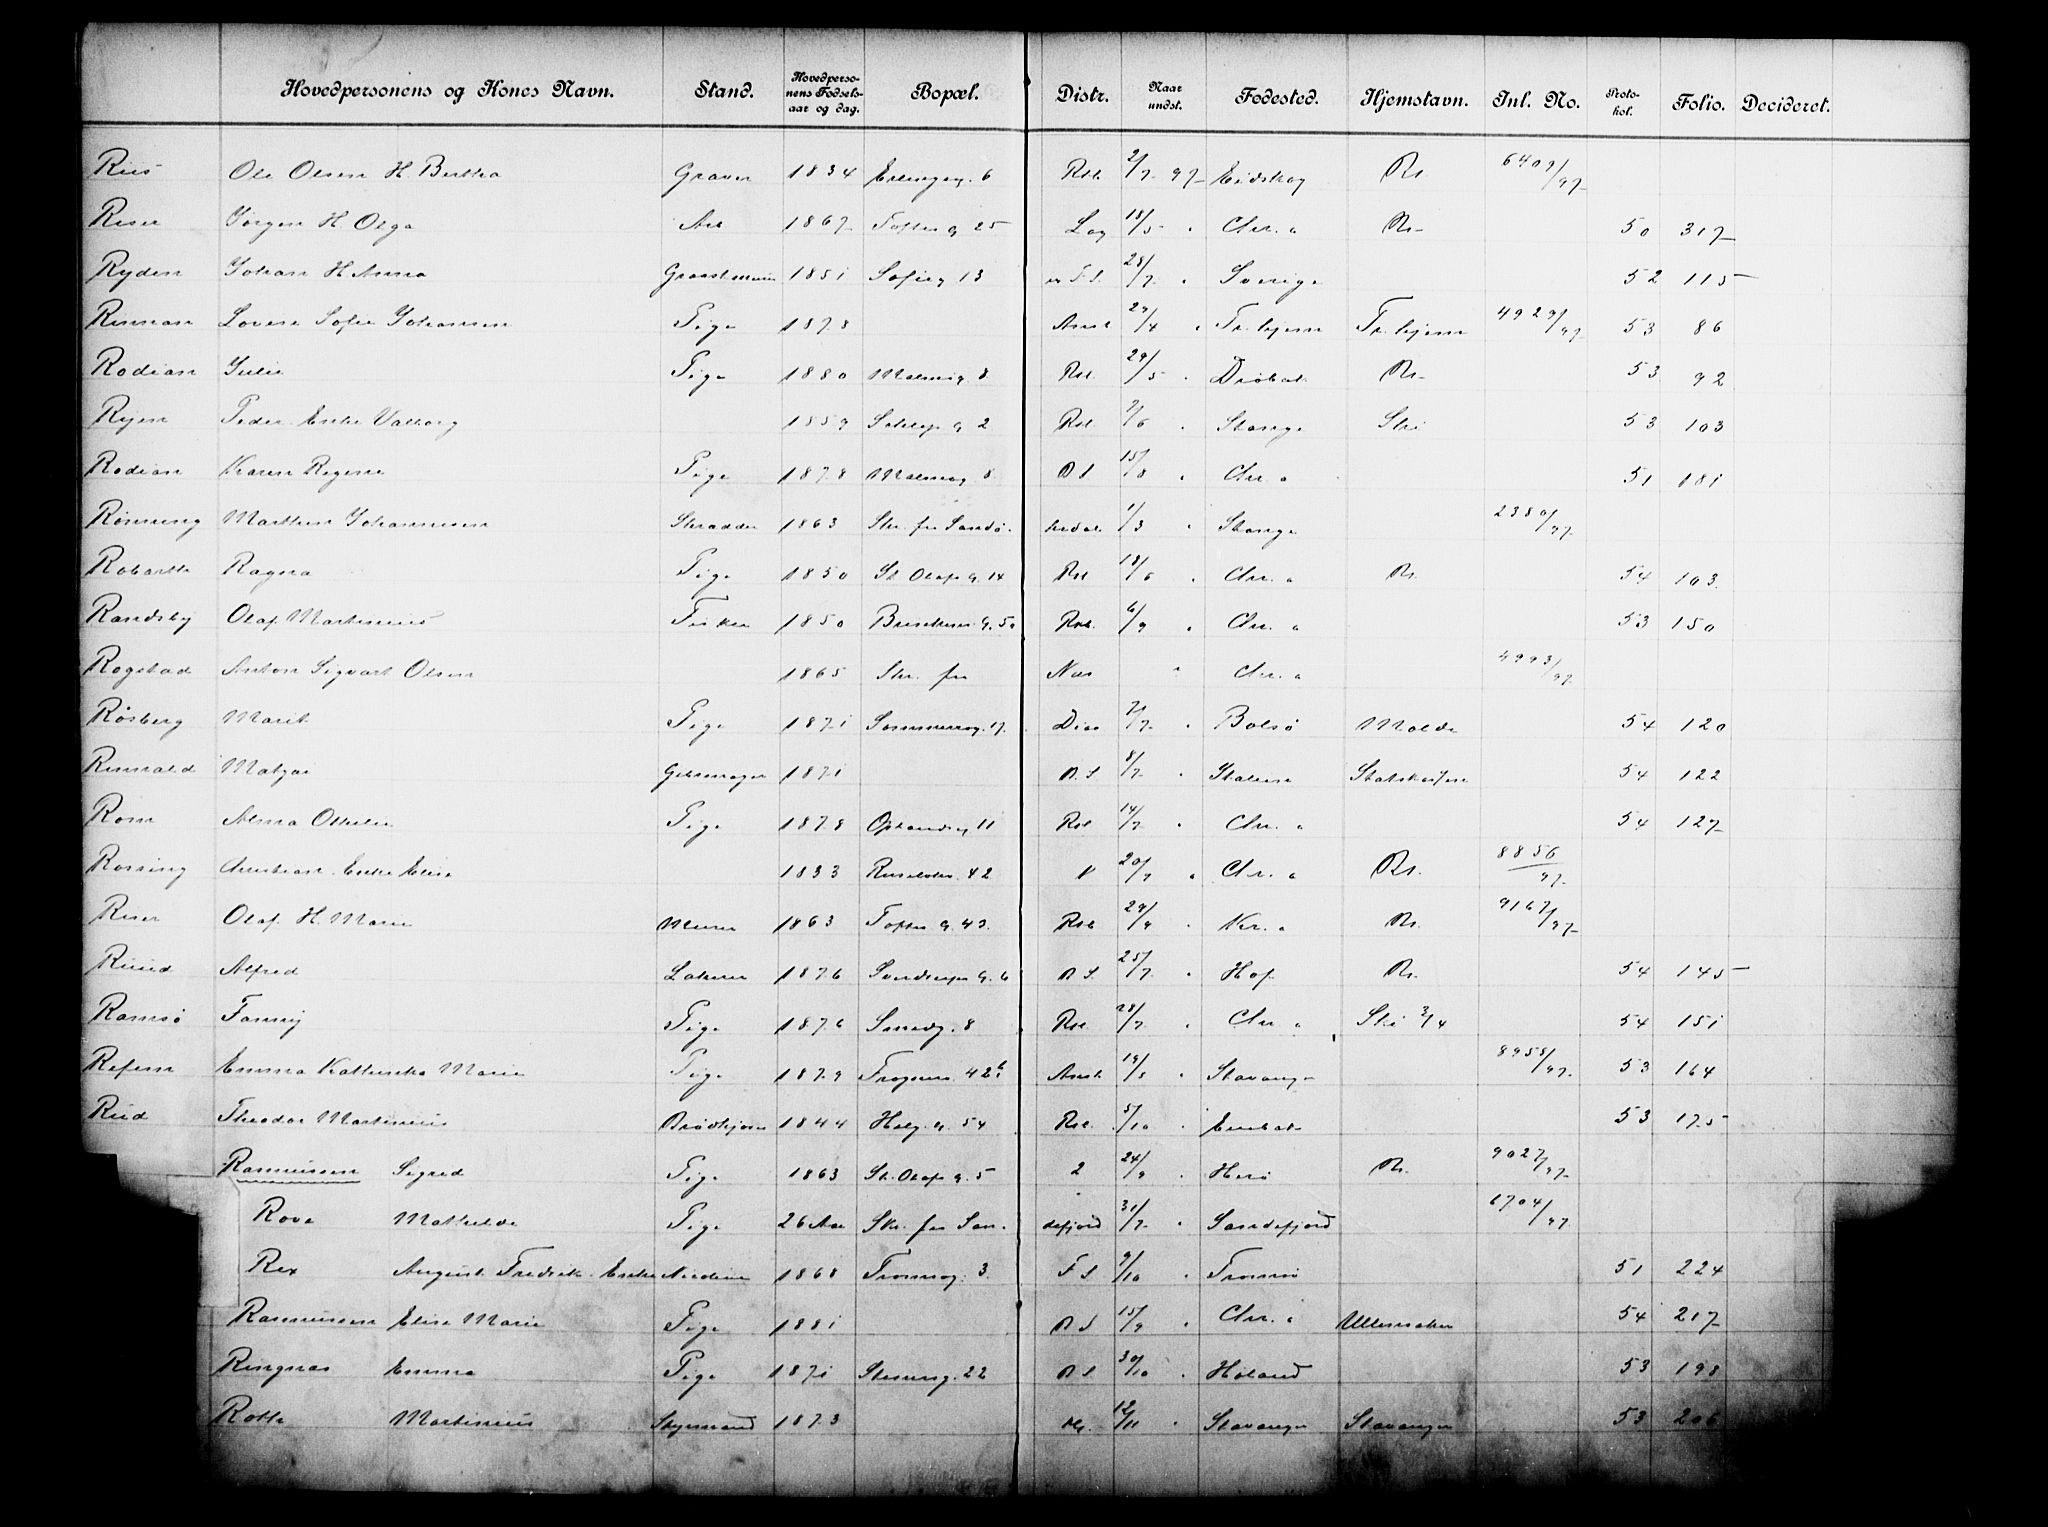 Hovedpersonens og Kones Navn. Stand. Hovedpersonens Fødselsaar og dag. Bopæl. Distr. Naar undst. Fødested. Hjemstavn. Inl. No. Protokol. Folio. Decideret.
Riis Ole Olsen H. Bertha Graver 1834 Erlingsg. 6 Rst. 2/7 97 Eidskog Kr. 6409/97
Riser Jørgen H. Olga Arb 1867 Toftes g 25 Log 18/5 " Chr. a Kr 50 317
Ryden Johan H. Anna 1851 Sofieg 13 F.S. 28/7 " Sverige 52 115
Lovise Sofie Johansen Pige 1878 Amst 29/4 " Tr.hjem Tr.hjem 4929/97 53 86
Rodian Julie Pige 1880 Malmøg. 8 Rst. 29/5 " Drøbak Kr 53 92
Ryen Peder Enke Valborg 1859 g 2 Rst. 7/6 " Stange Ski 53 103
Rodian Karen Regine Pige 1878 Malmøg 8 D S 15/8 " Chr. a 51 181
Rønning Marthin Johannesen Skrædder 1863 Skr. fra Sandø- 1/3 " Stange 2380/97
Ragna Pige 1850 St. Olafs g. 14 Rst 18/6 " Chr. a Kr. 54 103
Randsby Olaf Martinius Fisker 1850 g. 50 Rst. 6/9 " Chr. a 53 150
Rogstad Anton Sigvart Olsen 1865 Skr. fra Næs " Chr. a 4993/97
Røsberg Marit Pige 1871 Sommerrog. 17. Diac 7/7 " Bolsø Molde 54 120
Rinnald 1871 D.S 8/7 " Italien Statskassen 54 122
Rom Alma Othilie Pige 1878 Oplandsg 11 Rst 14/7 " Chr. a 54 127
Rossing Christian Enke Elise 1833 42 V 20/9 " Chr. a Kr. 8856/97
Riser Olaf H. Marie Murer 1863 Toftes g. 43. Rst 29/9 " Kr. a Kr. 9167/97
Ruud Alfred 1876 g. 6 D S. 25/7 " Hof Kr. 54 145
Ramsø Fanny Pige 1876 Smedg. 8 Rst. 28/7 " Chr a Ski 3/4 54 151
Refem Emma Kathinka Marie Pige 1879 Frognerv. 42 b Amst. 19/8 " Stavanger 8958/97 53 164
Rud Theodor Martinius Brødkjører 1844 Helg. g. 54 Rst. 5/10 " Enebak 53 175
Rasmussen Sigrid Pige 1863 St. Olafs g. 5 2 24/9 " Herø Kr. 9027/97
Rove Mathilde Pige 26 Aar Skr. fra San- defjord 31/7 " Sandefjord 6704/97
Rex August Fredrik Enke Nicoline 1868 Tromsøg. 3. F S 9/10 " Tromsø 51 224
Rasmussen Elise Marie Pige 1881 D S 15/9 " Chr. a Ullensaker 54 217
Ringnæs Emma Pige 1871 Stensg. 22 D S. 30/10 " Høland 53 198
Martinius Styrmand 1873 12/11 " Stavanger Stavanger 53 206